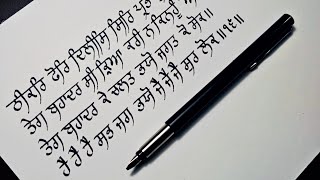 ਠੀਕਰਿ ਫੋਰਿ ਦਿਲੀਸਿ ਸਿਰਿ ਪ੍ਰਭ
ਤੇਗ ਬਹਾਦਰ ਸੀ ਕ੍ਰਿਆ ਕਰੀ ਨ ਕਿਨਹੂੰ
ਤੇਗ ਬਹਾਦਰ ਕੇ ਚਲਤ ਭਯੋ ਜਗਤ ਕੋ ਸੋਕ॥
ਹੈ ਹੈ ਹੈ ਸਭ ਜਗ ਭਯੋ ਜੈ ਜੈ ਜੈ ਸੁਰ ਲੋਕ॥੧੬॥